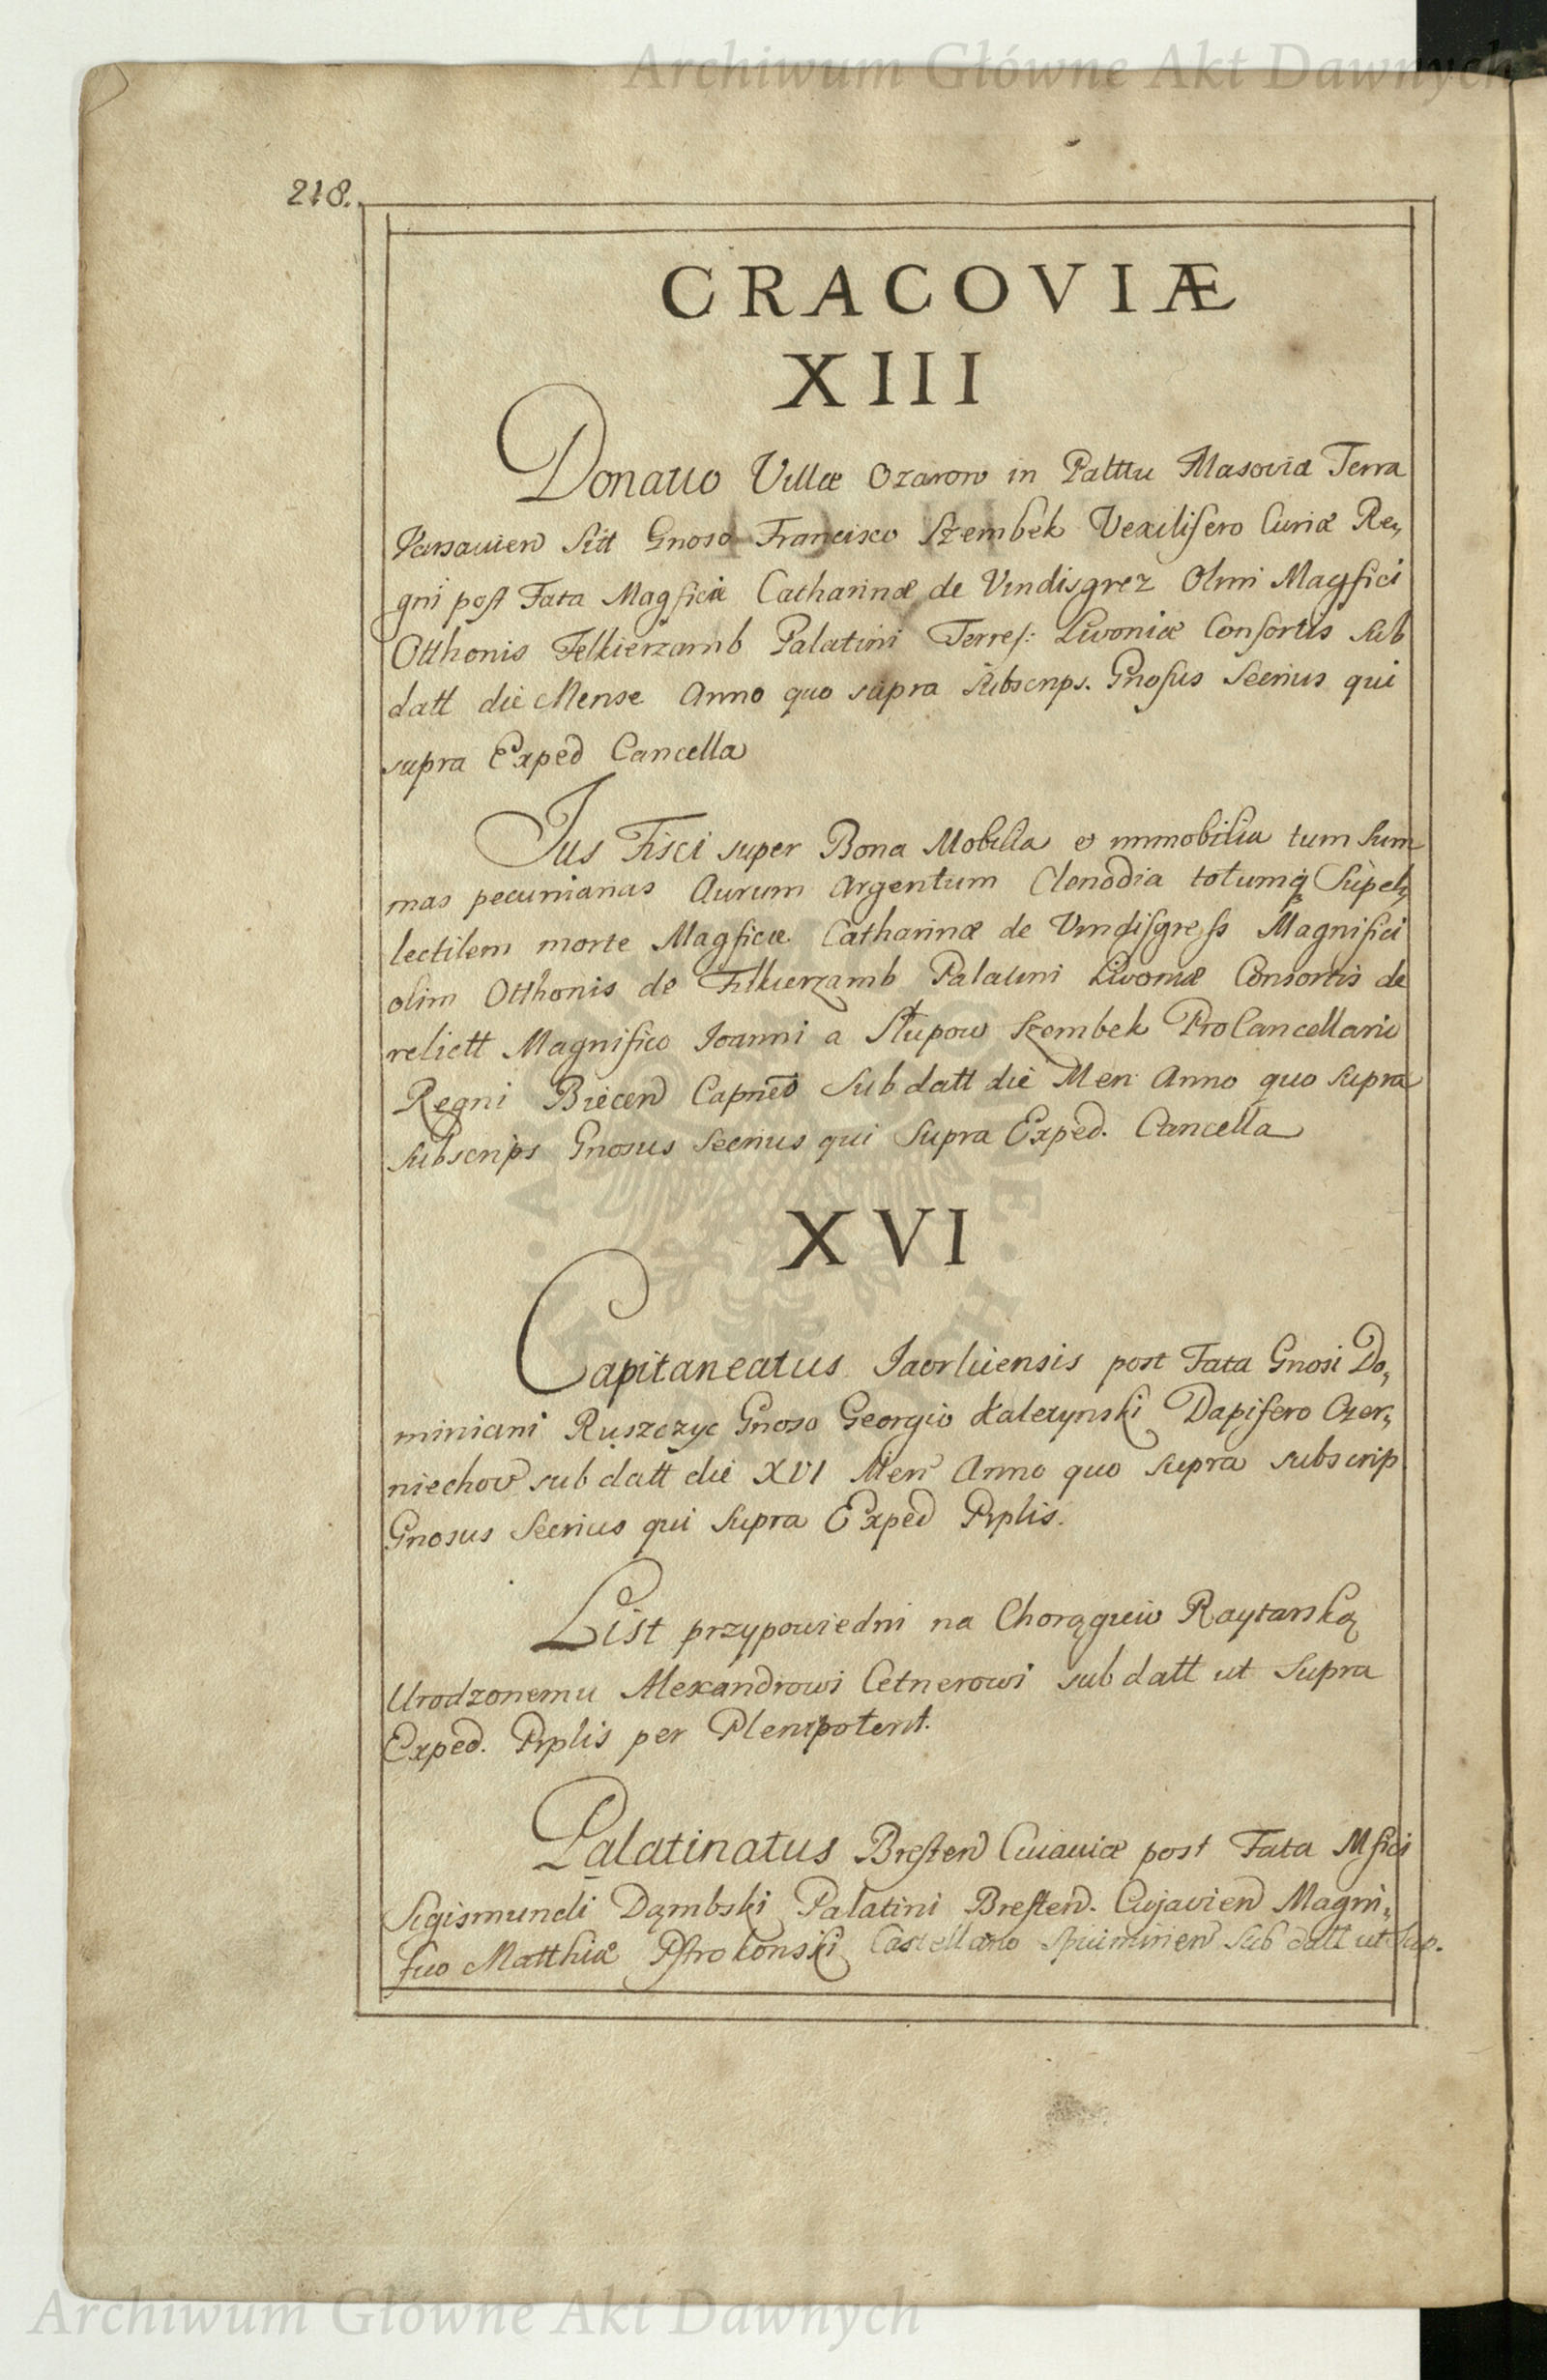 Archiwum Główne Akt Dawnych
218.
CRACOVIÆ
XIII
Donatio Villæ Ozarow in Palttu Masoviæ Terra
Varsavien Sitt Gnoso Francisco Szembek Vexilifero Curiæ Re,
gni post Fata Magficæ Catharinæ de Vindisgrez Olim Magfici
Otthonis Felkierzamb Palatini Terres: Livoniæ Consortis sub
datt die Mense Anno quo supra Subscrips. Gnosus Secrius qui
supra Exped Cancella
Jus Fisci super Bona Mobilia et immobilia tum Sum
mas pecuniarias Aurum Argentum Clenodia totumq Supel,
lectilem morte Magficæ Catharinæ de Vindisgress Magnifici
olim Otthonis de Filkierzamb Palatini Livoniæ Consortis de
relictt Magnifico Joanni a Słupow Szembek ProCancellario
Regni Biecen Capneo Sub datt die Men Anno quo supra
Subscrips Gnosus Secrius qui Supra Exped. Cancella
XVI
Capitaneatus Jaorliensis post Fata Gnosi Do,
miniani Ruszczyc Gnoso Georgio Kaletynski Dapifero Czer,
niechov sub datt die XVI Men Anno quo supra subscrip
Gnosus Secrius qui Supra Exped Prplis.
List przypowiedni na Chorągwio Raytarską
Urodzonemu Alexandrowi Cetnerowi sub datt ut Supra
Exped. Prplis per Plenipotent.
Palatinatus Bresten Cuiaviæ post Fata Mfici
Sigismundi Dąmbski Palatini Bresten. Cujavien Magni,
fico Matthiæ Pstrokonski Castellano Spiciminen Sub datt ut sup.
Archiwum Główne Akt Dawnych